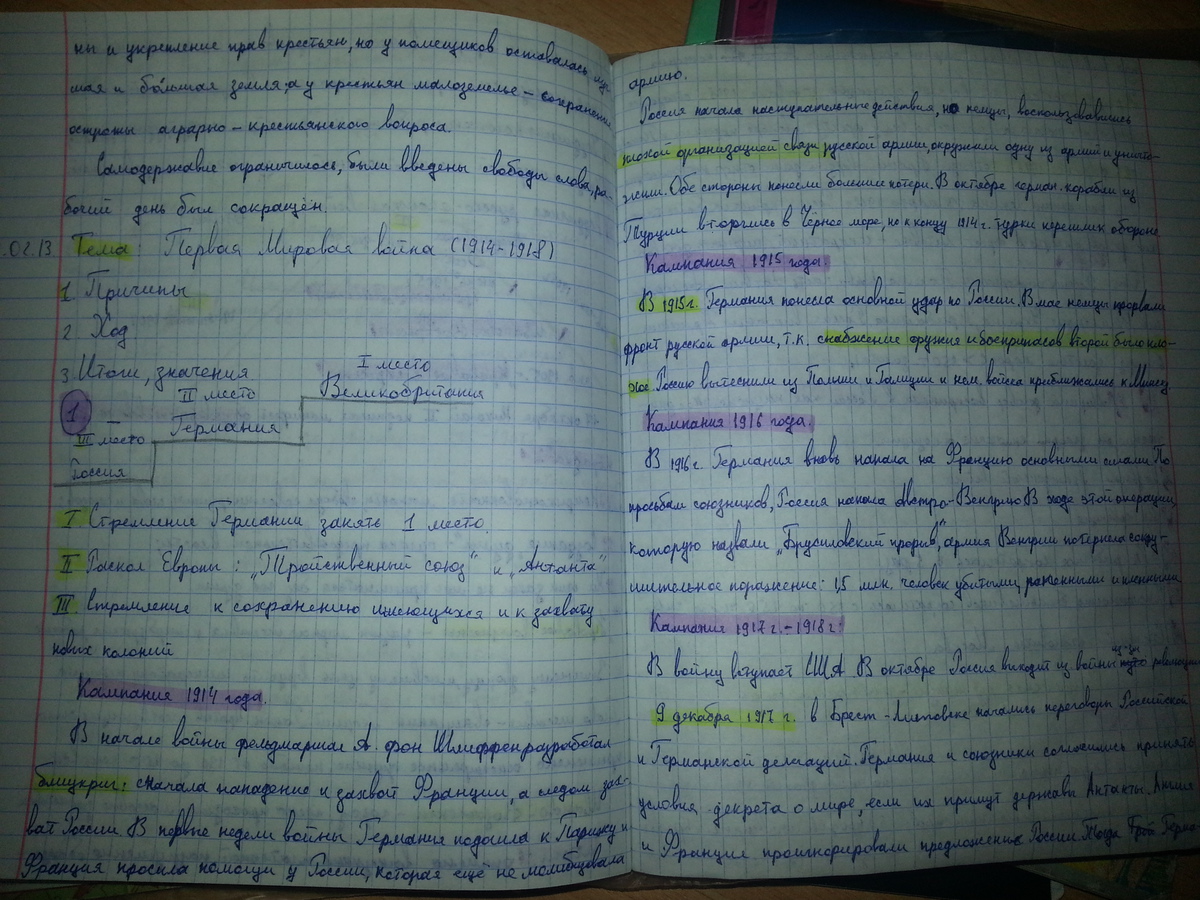 ны и укрепление прав крестьян, но у помещиков оставалась луч-
шая и бо́льшая земля, а у крестьян малоземелье – сохранение
остроты аграрно – крестьянского вопроса.
Самодержавие ограничилось, были введены свободы слова, ра-
бочий день был сокращён.
.02.13 Тема: Первая Мировая война (1914-1918)
1. Причины
2. Ход
3. Итоги, значения
I место
II место
Великобритания
1
Германия
III место
Россия
I Стремление Германии занять 1 место.
II Раскол Европы: „Тройственный союз" и „Антанта"
III Стремление к сохранению имеющихся и к захвату
новых колоний
Кампания 1914 года.
В начале войны фельдмаршал А. фон Шлиффен разработал
блицкриг: сначала нападение и захват Франции, а следом зах-
ват России. В первые недели войны Германия подошла к Парижу и
Франция просила помощи у России, которая ещё не мобилизовала
армию.
Россия начала наступательные действия, но немцы, воспользовавшись
плохой организацией связи русской армии, окружили одну из армий и уничто-
жили. Обе стороны понесли большие потери. В октябре герман. корабли из
Турции вторглись в Чёрное море, но к концу 1914 г. турки перешли к обороне
Кампания 1915 года.
В 1915 г. Германия понесла основной удар по России. В мае немцы прорвали
фронт русской армии, т.к. снабжение оружия и боеприпасов второй было пло-
хое. Россию вытеснили из Польши и Галиции и нем. войска приближались к Минску
Кампания 1916 года.
В 1916 г. Германия вновь напала на Францию основными силами. По
просьбам союзников, Россия напала Австро-Венгрию. В ходе этой операции,
которую назвали „Брусиловский прорыв", армия Венгрии потерпела сокру-
шительное поражение: 1,5 млн. человек убитыми, ранеными и пленными
Кампания 1917 г. – 1918 г.
В войну вступает США. В октябре Россия выходит из войны из-за революции
9 декабря 1917 г. в Брест-Литовске начались переговоры Российской
и Германской делегаций. Германия и союзники согласились принять
условия декрета о мире, если их примут державы Антанты. Англия
и Франция проигнорировали предложение России. Тогда